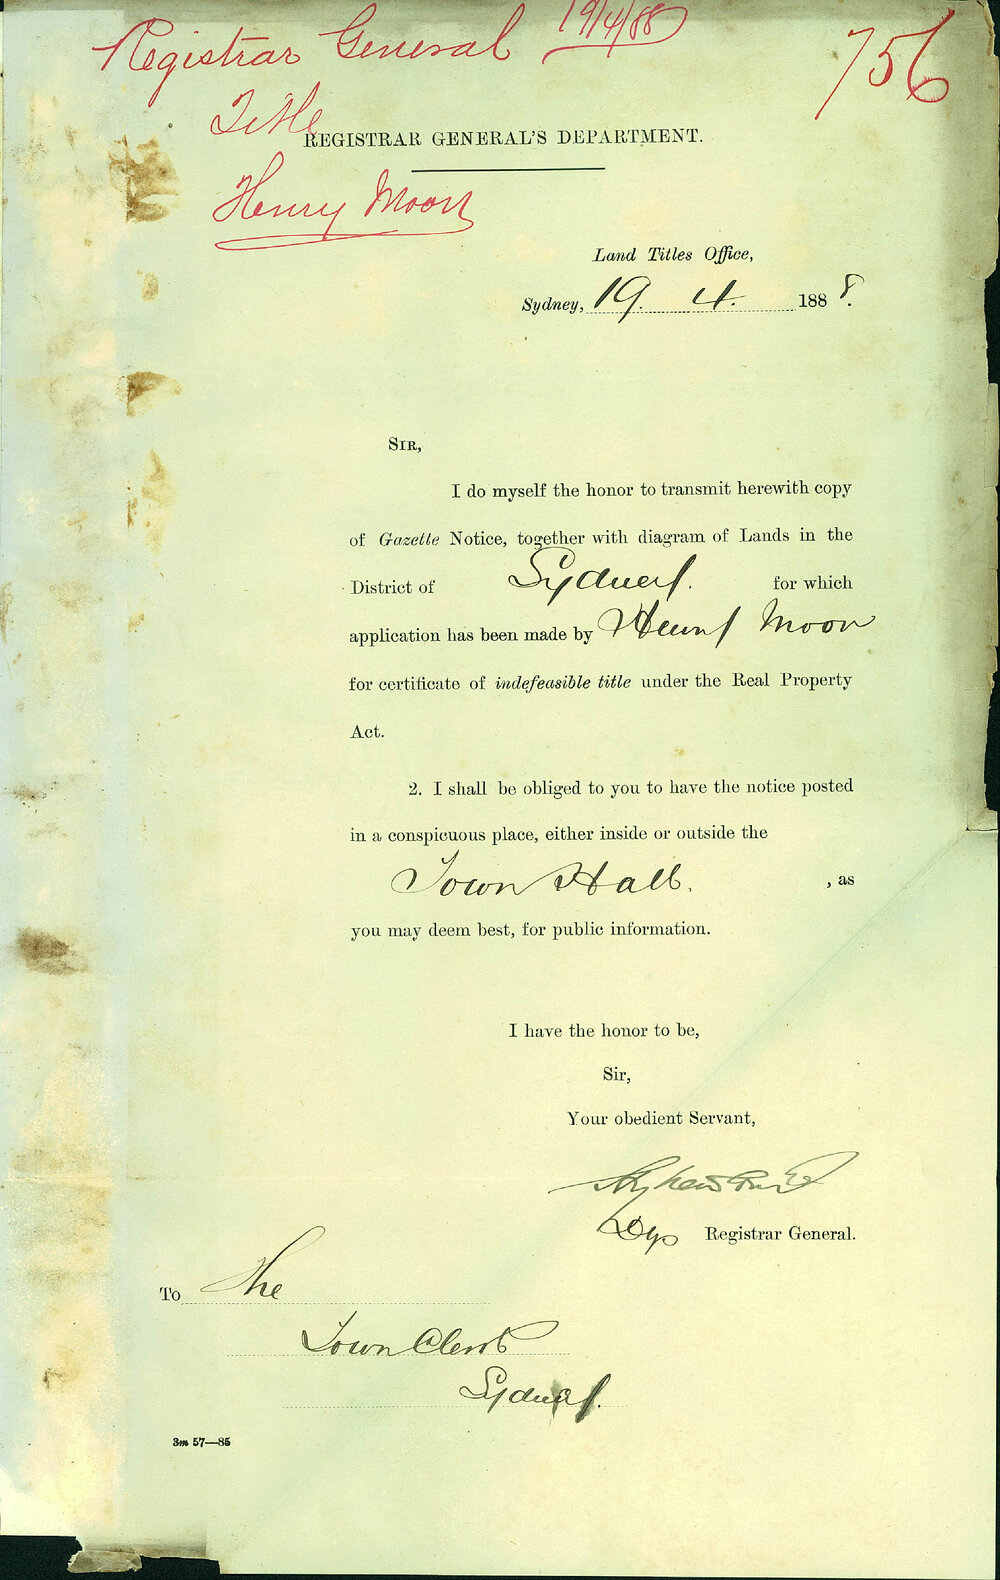 Registrar General 19/4/88
756
Title
REGISTRAR GENERAL'S DEPARTMENT.
Henry Moon
Land Titles Office,
Sydney, 19. 4. 1888.
SIR,
I do myself the honor to transmit herewith copy
of Gazette Notice, together with diagram of Lands in the
District of Sydney. for which
application has been made by Henry Moon
for certificate of indefeasible title under the Real Property
Act.
2. I shall be obliged to you to have the notice posted
in a conspicuous place, either inside or outside the
Town Hall. , as
you may deem best, for public information.
I have the honor to be,
Sir,
Your obedient Servant,
Dep Registrar General.
To The
Town Clerk
Sydney.
3m 57—85